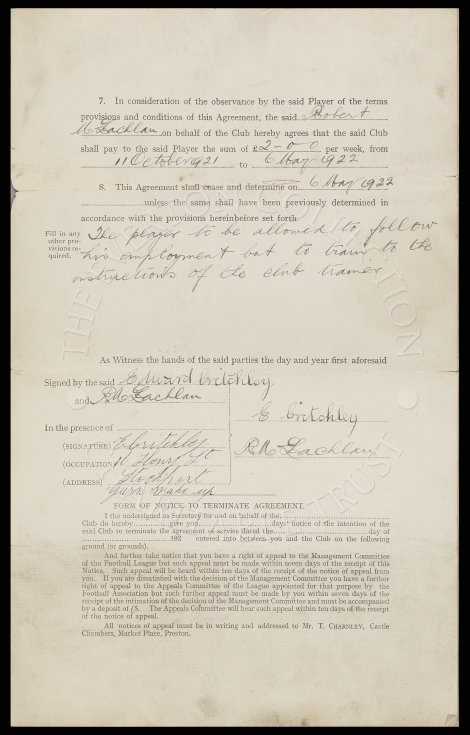 7. In consideration of the observance by the said Player of the terms
provisions and conditions of this Agreement, the said Robert
McLachlan on behalf of the Club hereby agrees that the said Club
shall pay to the said Player the sum of £2-0-0 per week, from
11 October 1921 to 6 May 1922
8. This Agreement shall cease and determine on 6 May 1922
unless the same shall have been previously determined in
accordance with the provisions hereinbefore set forth
Fill in any
other pro-
visions re-
quired.
The player to be allowed to follow
his employment but to train to the
instructions of the club trainer
As Witness the hands of the said parties the day and year first aforesaid
Signed by the said Edward Critchley
and R McLachlan
E Critchley
In the presence of
R McLachlan
(SIGNATURE) E Critchley
(OCCUPATION) 11 Henry St
(ADDRESS) Stockport
yarn make up
FORM OF NOTICE TO TERMINATE AGREEMENT.
I the undersigned as Secretary for and on behalf of the
Club do hereby give you days' notice of the intention of the
said Club to terminate the agreement of service dated the day of
192 entered into between you and the Club on the following
ground (or grounds).
And further take notice that you have a right of appeal to the Management Committee
of the Football League but such appeal must be made within seven days of the receipt of this
Notice. Such appeal will be heard within ten days of the receipt of the notice of appeal from
you. If you are dissatisfied with the decision of the Management Committee you have a further
right of appeal to the Appeals Committee of the League appointed for that purpose by the
Football Association but such further appeal must be made by you within seven days of the
receipt of the intimation of the decision of the Management Committee and must be accompanied
by a deposit of £5. The Appeals Committee will hear such appeal within ten days of the receipt
of the notice of appeal.
All notices of appeal must be in writing and addressed to Mr. T. CHARNLEY, Castle
Chambers, Market Place, Preston.